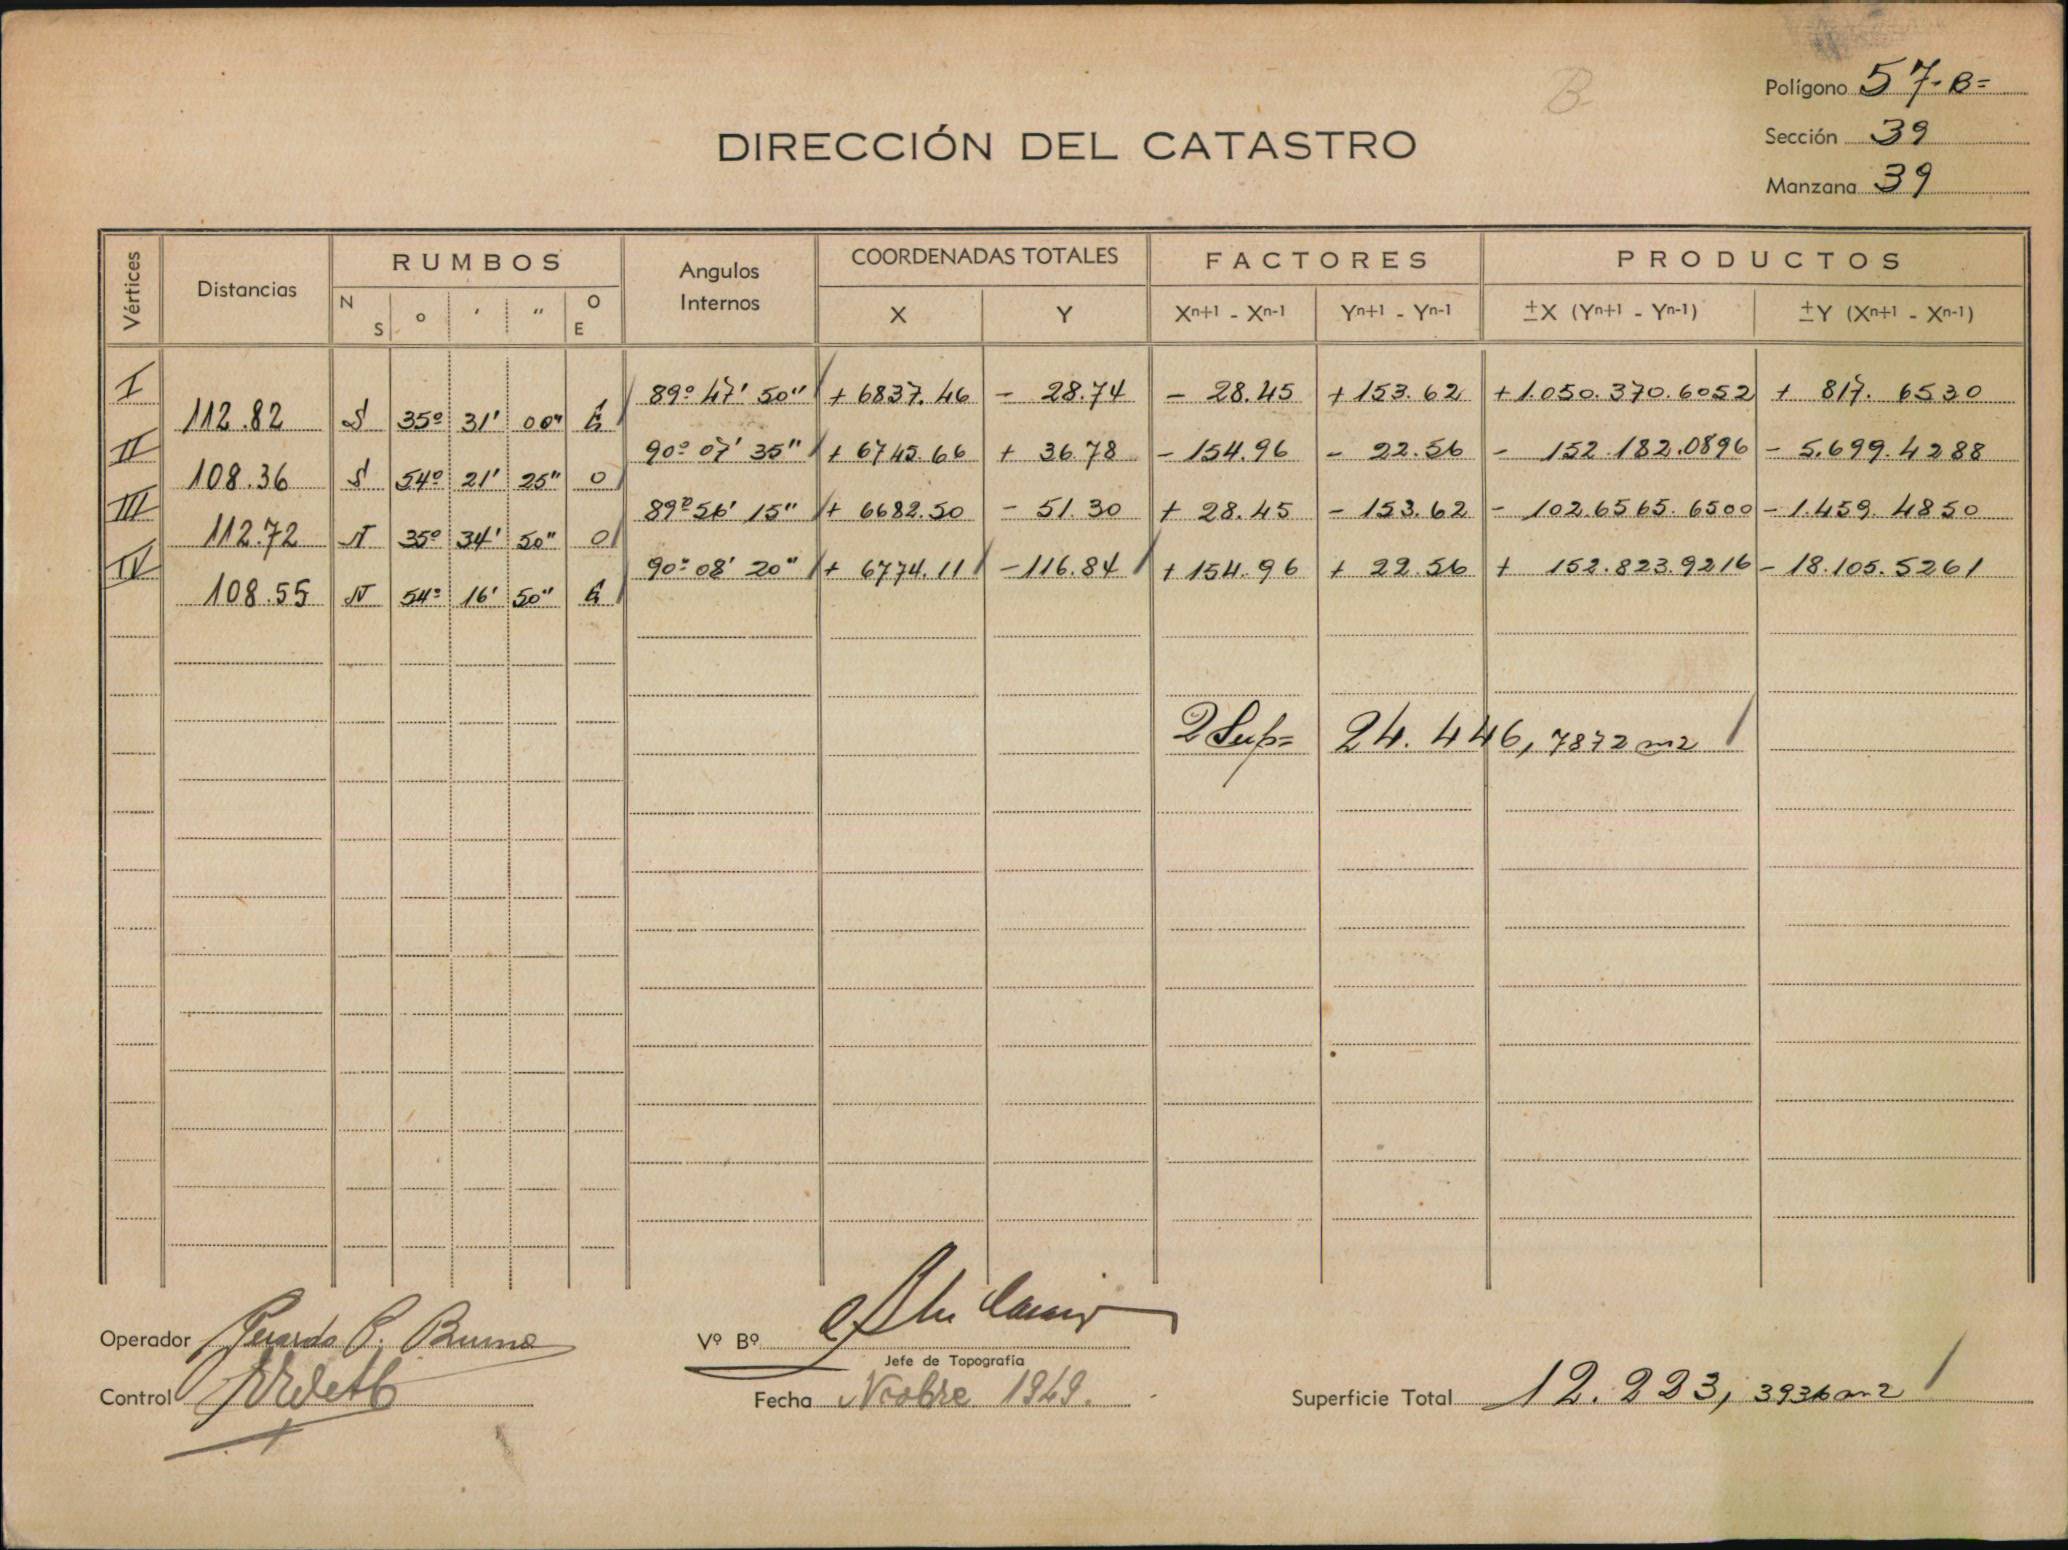 B
Polígono 57-B=
Sección 39
Manzana 39
DIRECCIÓN DEL CATASTRO
Vértices Distancias RUMBOS Angulos Internos COORDENADAS TOTALES FACTORES PRODUCTOS
N S o ' " O E X Y Xn+1 - Xn-1 Yn+1 - Yn-1 ±X (Yn+1 - Yn-1) ±Y (Xn+1 - Xn-1)
I 89º 47' 50" + 6837.46 - 28.74 - 28.45 + 153.62 + 1.050.370.6052 + 817.6530
112.82 S 35º 31' 00" E
II 90º 07' 35" + 6745.66 + 36.78 - 154.96 - 22.56 - 152.182.0896 - 5.699.4288
108.36 S 54º 21' 25" O
III 89º 56' 15" + 6682.50 - 51.30 + 28.45 - 153.62 - 102.6565.6500 - 1.459.4850
112.72 N 35º 34' 50" O
IV 90º 08' 20" + 6774.11 - 116.84 + 154.96 + 22.56 + 152.823.9216 - 18.105.5261
108.55 N 54º 16' 50" E
2 Sup= 24.446,7872 m2
Operador Gerardo P. Bruno
Vº Bº
Jefe de Topografía
Control
Fecha Nvobre 1949.
Superficie Total 12.223,3936 m2